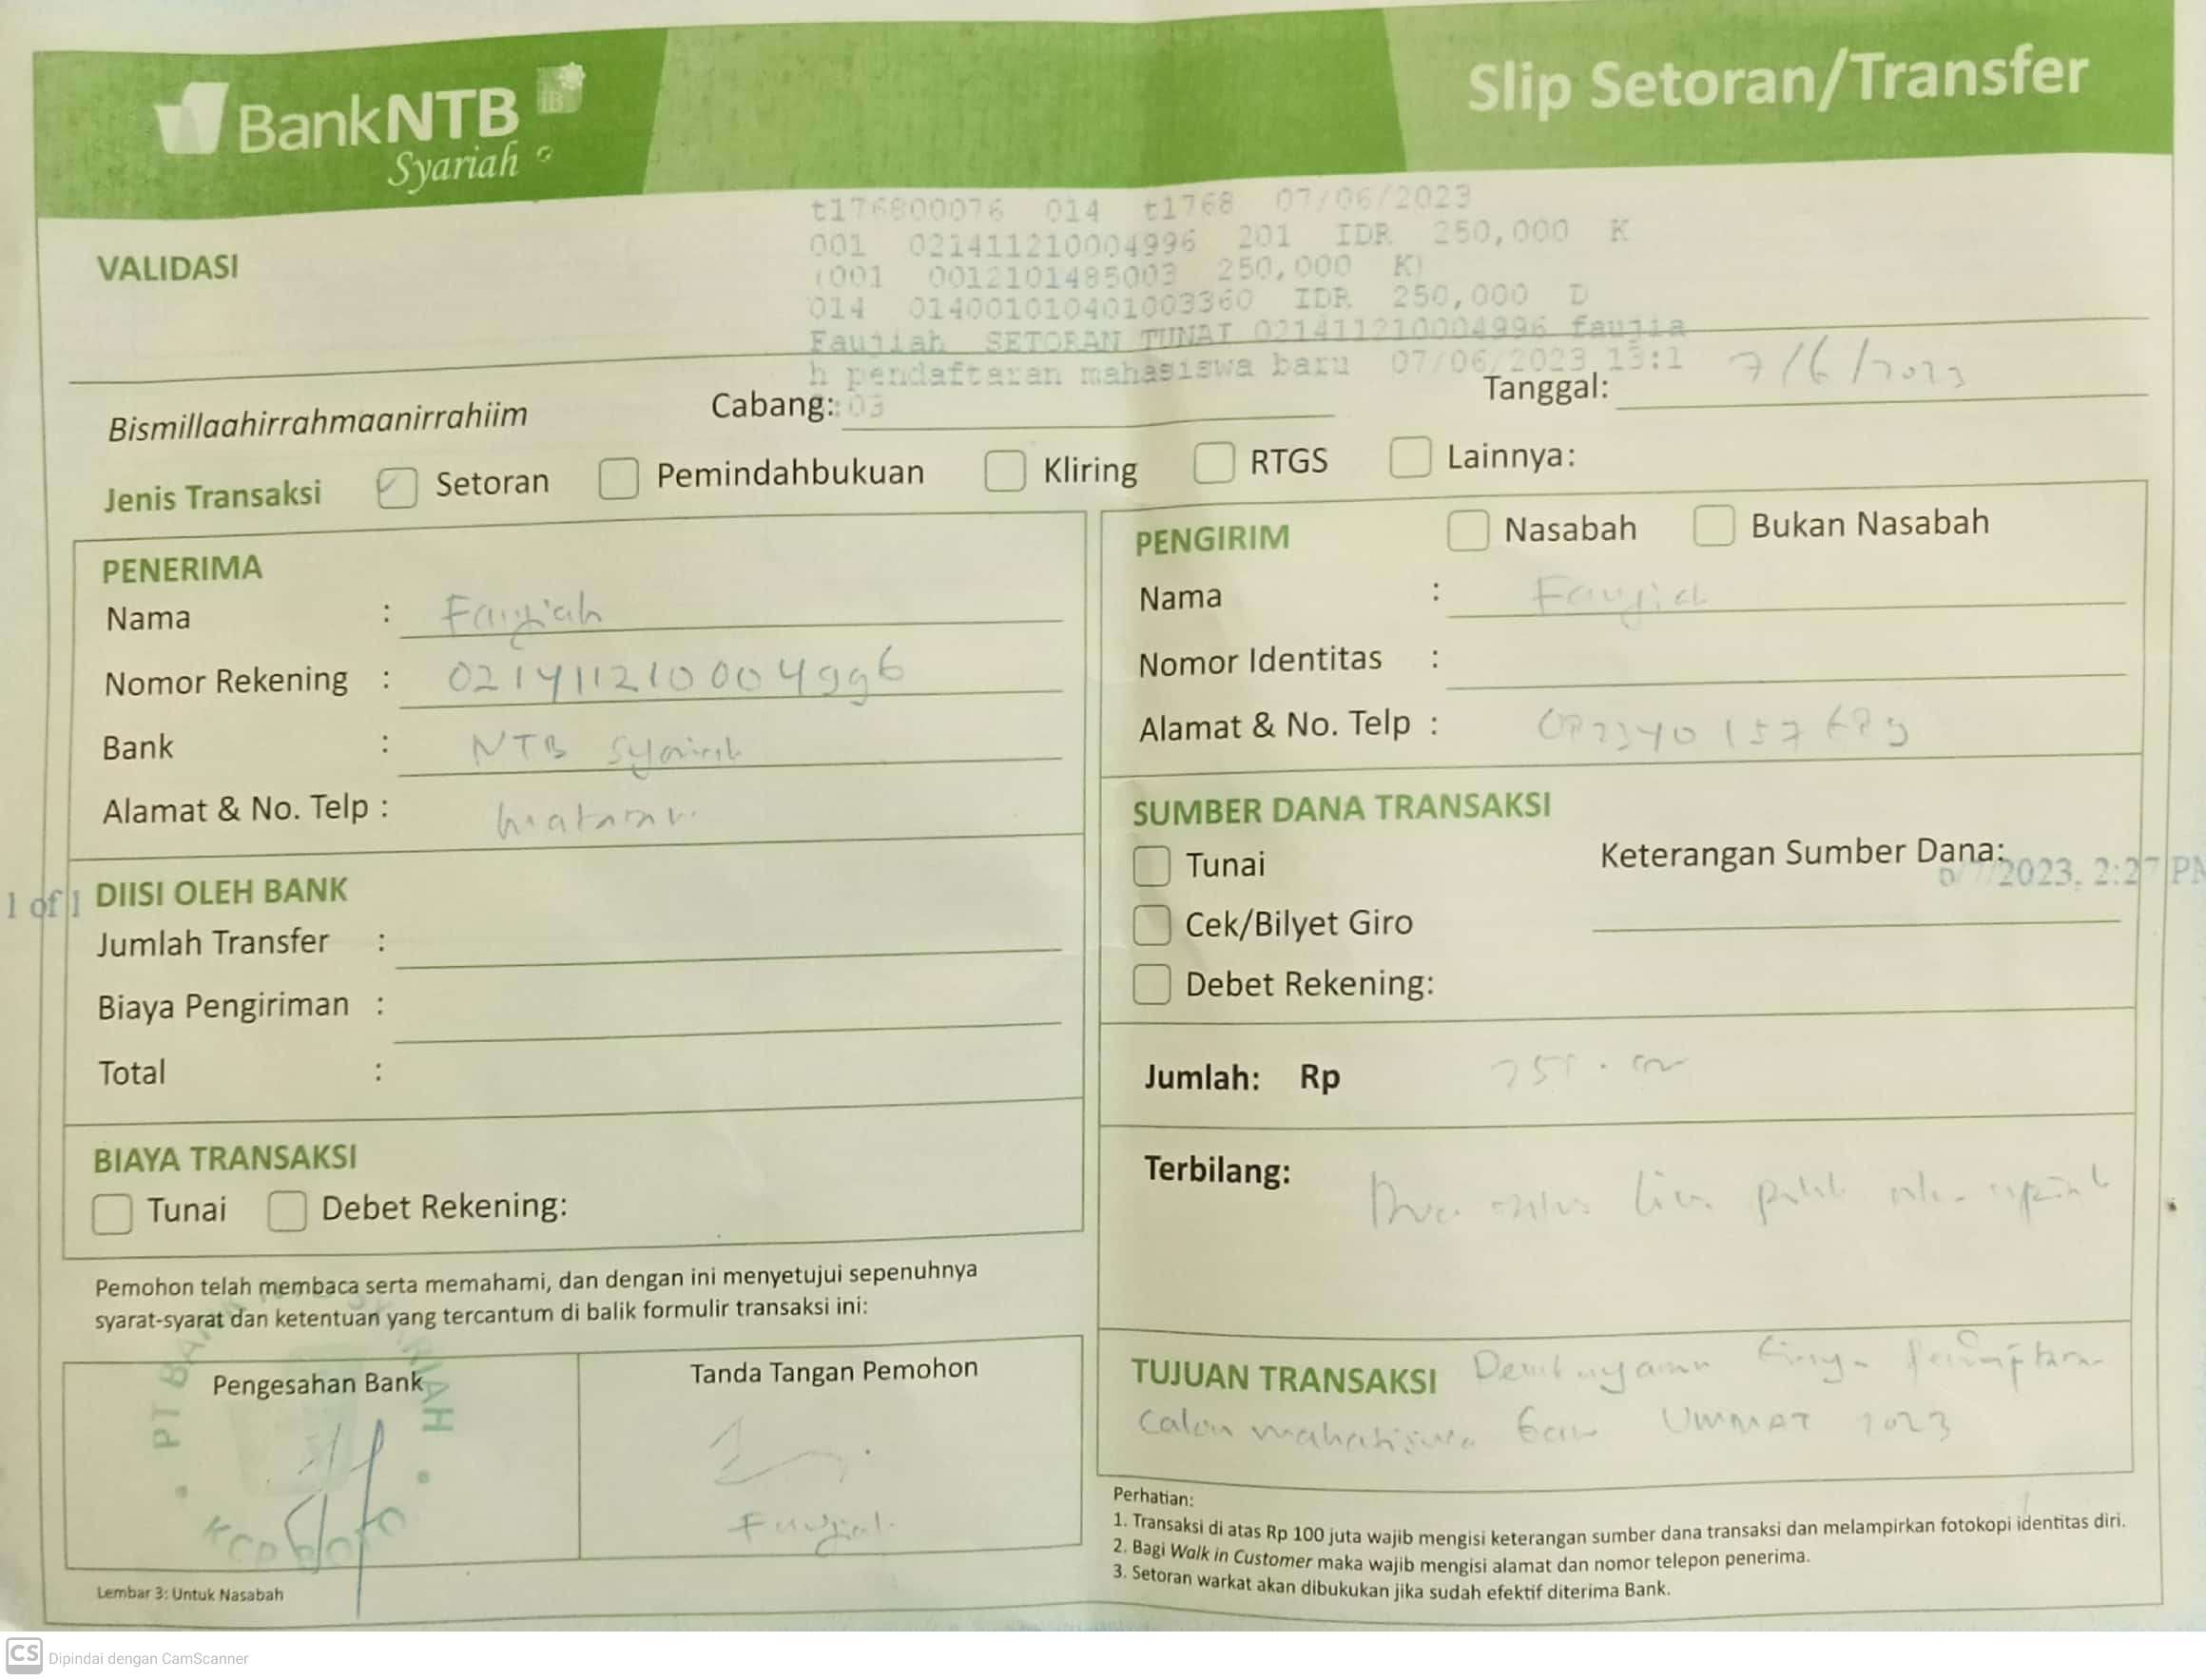 BankNTB
Syariah
Slip Setoran/Transfer
t176800076 014 t1768 07/06/2023
001 021411210004996 201 IDR 250,000 K
(001 0012101485003 250,000 K)
014 014001010401003360 IDR 250,000 D
Faujiah SETORAN TUNAI 021411210004996 faujia
h pendaftaran mahasiswa baru 07/06/2023 13:1
:03
VALIDASI
Bismillaahirrahmaanirrahiim
Cabang:
Tanggal: 7/6/2023
Jenis Transaksi Setoran Pemindahbukuan Kliring RTGS Lainnya:
PENERIMA
Nama : Faujiah
Nomor Rekening : 021411210004996
Bank : NTB Syariah
Alamat & No. Telp : mataram
DIISI OLEH BANK
Jumlah Transfer :
Biaya Pengiriman :
Total :
BIAYA TRANSAKSI
Tunai Debet Rekening:
Pemohon telah membaca serta memahami, dan dengan ini menyetujui sepenuhnya
syarat-syarat dan ketentuan yang tercantum di balik formulir transaksi ini:
Pengesahan Bank
PT BANK SYARIAH
KCP
Tanda Tangan Pemohon
Faujiah
Lembar 3: Untuk Nasabah
PENGIRIM Nasabah Bukan Nasabah
Nama : Faujiah
Nomor Identitas :
Alamat & No. Telp :
SUMBER DANA TRANSAKSI
Tunai
Keterangan Sumber Dana:
Cek/Bilyet Giro
Debet Rekening:
1 of 1
/2023, 2:27 PM
Jumlah: Rp 250.000
Terbilang: Dua ratus lima puluh ribu rupiah
TUJUAN TRANSAKSI Pembayaran biaya pendaftaran
calon mahasiswa baru UMMAT 2023
Perhatian:
1. Transaksi di atas Rp 100 juta wajib mengisi keterangan sumber dana transaksi dan melampirkan fotokopi identitas diri.
2. Bagi Walk in Customer maka wajib mengisi alamat dan nomor telepon penerima.
3. Setoran warkat akan dibukukan jika sudah efektif diterima Bank.
CS Dipindai dengan CamScanner